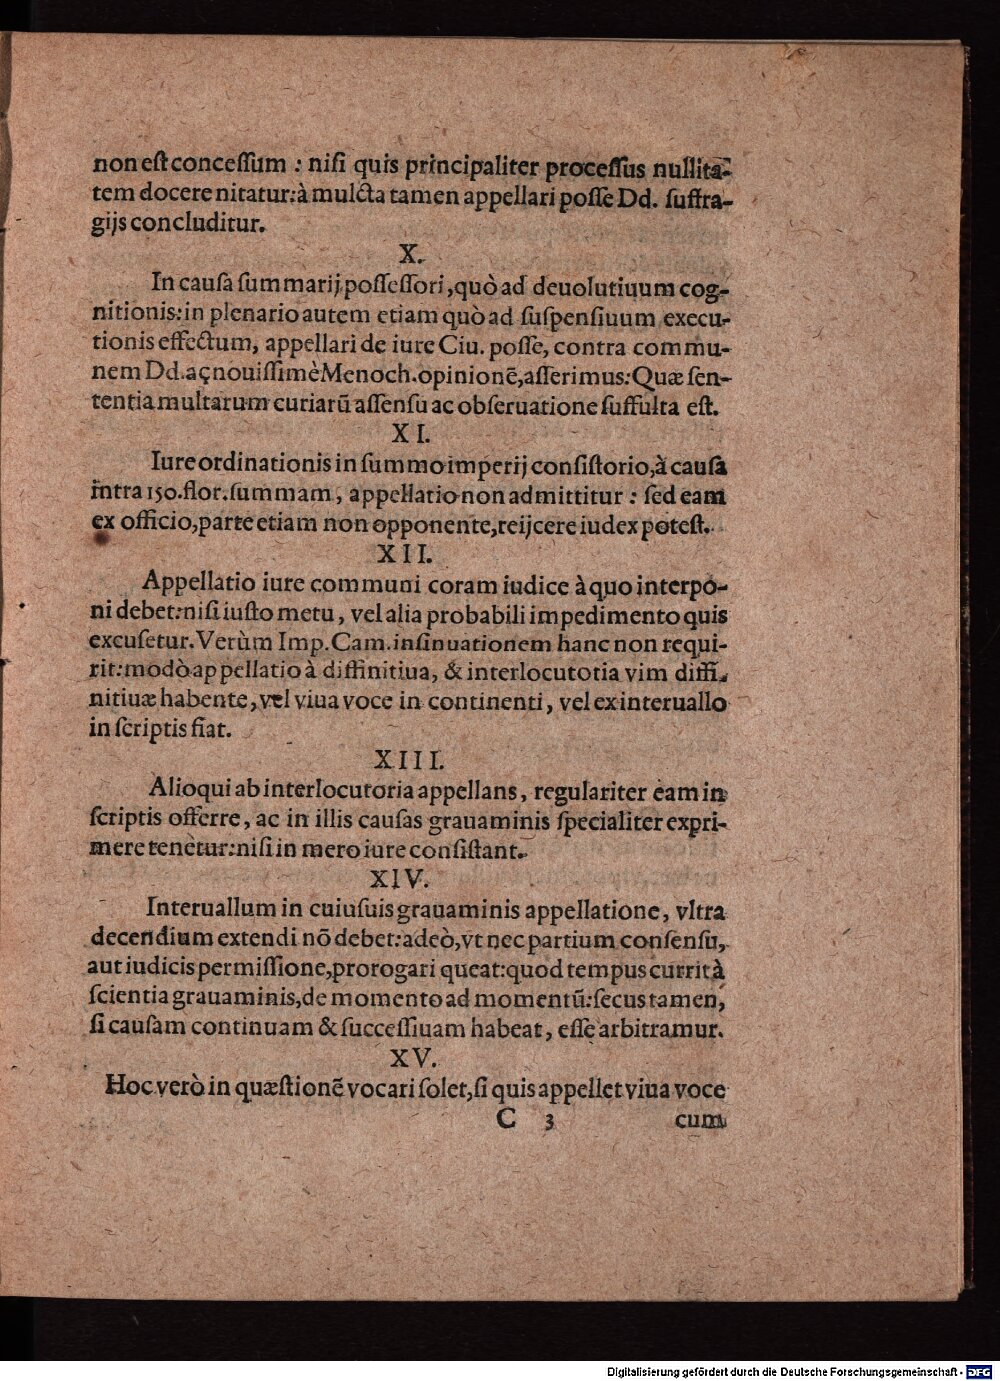 non est concessum : nisi quis principaliter processus nullita-
tem docere nitatur: à mulcta tamen appellari posse Dd. suffra-
gijs concluditur.
X.
In causa summarij possessori, quò ad deuolutiuum cog-
nitionis: in plenario autem etiam quò ad suspensiuum execu-
tionis effectum, appellari de iure Ciu. posse, contra commu-
nem Dd. aç nouissimè Menoch. opinionē, asserimus: Quæ sen-
tentia multarum curiarū assensu ac obseruatione suffulta est.
XI.
Iure ordinationis in summo imperij consistorio, à causa
intra 150. flor. summam, appellatio non admittitur : sed eam
ex officio, parte etiam non opponente, reijcere iudex potest.
XII.
Appellatio iure communi coram iudice à quo interpo-
ni debet: nisi iusto metu, vel alia probabili impedimento quis
excusetur. Verùm Imp. Cam. insinuationem hanc non requi-
rit: modò appellatio à diffinitiua, & interlocutoria vim diffi-
nitiuæ habente, vel viua voce in continenti, vel ex interuallo
in scriptis fiat.
XIII.
Alioqui ab interlocutoria appellans, regulariter eam in
scriptis offerre, ac in illis causas grauaminis specialiter expri-
mere tenetur: nisi in mero iure consistant.
XIV.
Interuallum in cuiusuis grauaminis appellatione, vltra
decendium extendi nō debet: adeò, vt nec partium consensu,
aut iudicis permissione, prorogari queat: quod tempus currit à
scientia grauaminis, de momento ad momentū: secus tamen,
si causam continuam & successiuam habeat, esse arbitramur.
XV.
Hoc verò in quæstionē vocari solet, si quis appellet viua voce
C 3 cum
Digitalisierung gefördert durch die Deutsche Forschungsgemeinschaft - DFG